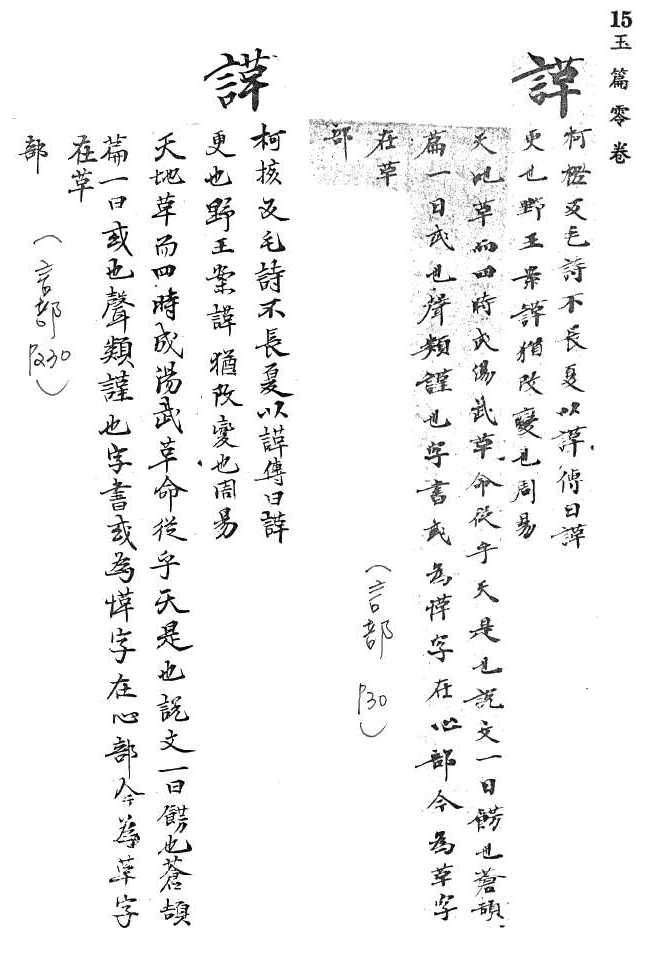 15 玉篇零卷
諽
柯橙反毛詩不長夏以諽傳曰諽
更也野王案諽猶改變也周易
天地革而四時成湯武革命從乎天是也說文一曰飭也蒼頡
篇一曰或也聲類謹也字書或為愅字在心部今為革字
在革
部
（言部 P30）
諽
柯核反毛詩不長夏以諽傳曰諽
更也野王案諽猶改變也周易
天地革而四時成湯武革命從乎天是也說文一曰飭也蒼頡
篇一曰或也聲類謹也字書或為愅字在心部今為革字
在革
部
（言部 P230）